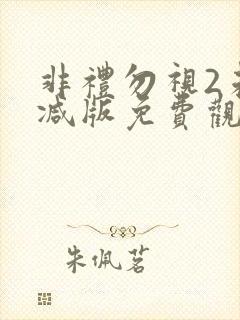 非禮勿視2
減版免費觀
朱佩茗